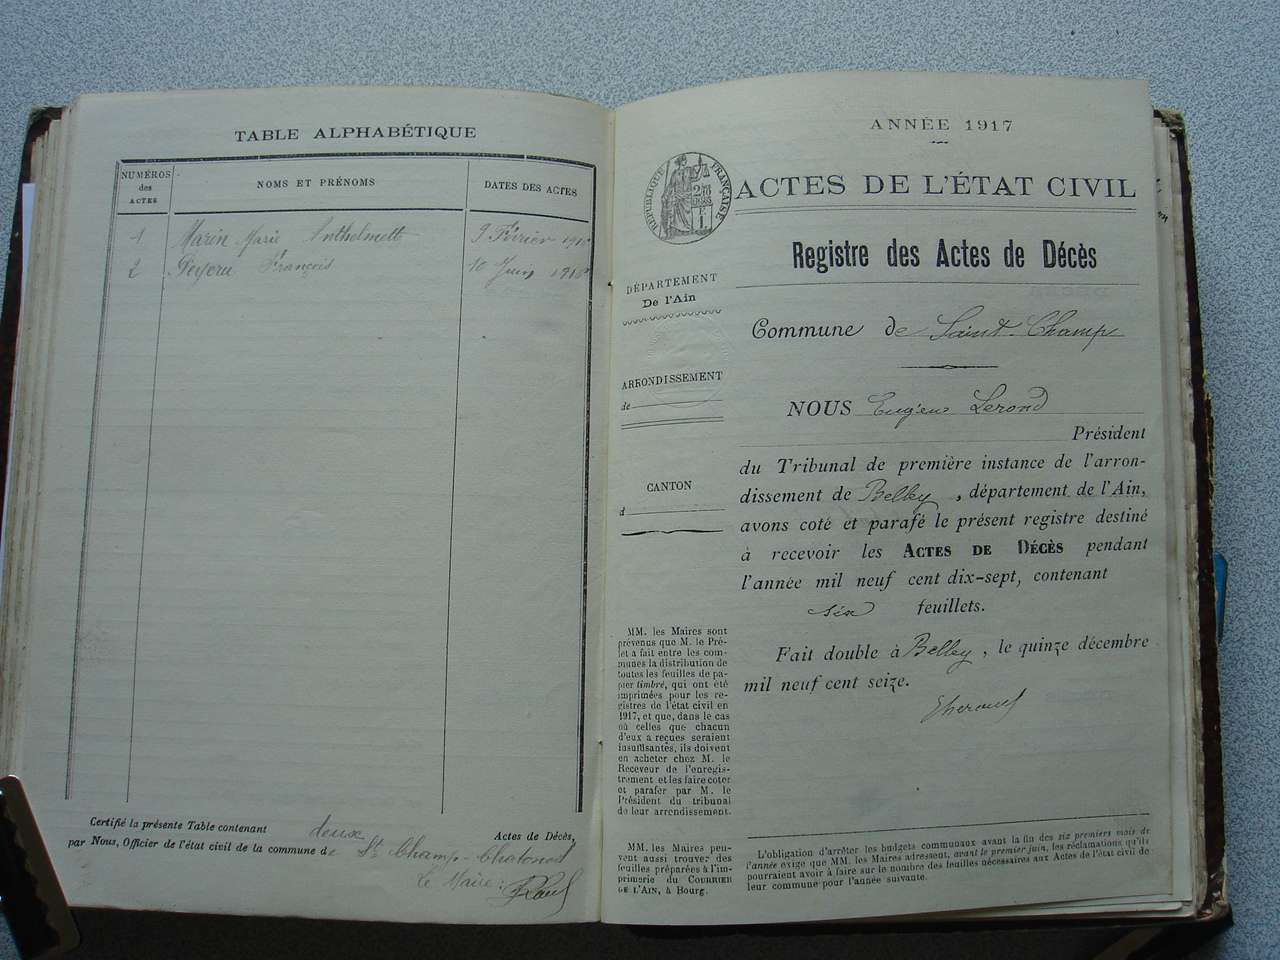 TABLE ALPHABÉTIQUE
NUMÉROS des ACTES
NOMS ET PRÉNOMS
DATES DES ACTES
1 Marin Marie Anthelmette 9 Février
2 François 10 Juin
Certifié la présente Table contenant deux Actes de Décès,
par Nous, Officier de l'état civil de la commune de St Champ-Chatonod
Le Maire :
ANNÉE 1917
RÉPUBLIQUE FRANÇAISE
ACTES DE L'ÉTAT CIVIL
Registre des Actes de Décès
DÉPARTEMENT
De l'Ain
Commune de Saint-Champ
ARRONDISSEMENT
de
CANTON
d
NOUS Eugène Lerond
Président
du Tribunal de première instance de l'arron-
dissement de Belley, département de l'Ain,
avons coté et parafé le présent registre destiné
à recevoir les ACTES DE DÉCÈS pendant
l'année mil neuf cent dix-sept, contenant
six feuillets.
Fait double à Belley, le quinze décembre
mil neuf cent seize.
MM. les Maires sont
prévenus que M. le Pré-
fet a fait entre les com-
munes la distribution de
toutes les feuilles de pa-
pier timbré, qui ont été
imprimées pour les re-
gistres de l'état civil en
1917, et que, dans le cas
où celles que chacun
d'eux a reçues seraient
insuffisantes, ils doivent
en acheter chez M. le
Receveur de l'enregis-
trement et les faire coter
et parafer par M. le
Président du tribunal
de leur arrondissement.
MM. les Maires peu-
vent aussi trouver des
feuilles préparées à l'im-
primerie du COURRIER
DE L'AIN, à Bourg.
L'obligation d'arrêter les budgets communaux avant la fin des six premiers mois de
l'année exige que MM. les Maires adressent, avant le premier juin, les réclamations qu'ils
pourraient avoir à faire sur le nombre des feuilles nécessaires aux Actes de l'état civil de
leur commune pour l'année suivante.